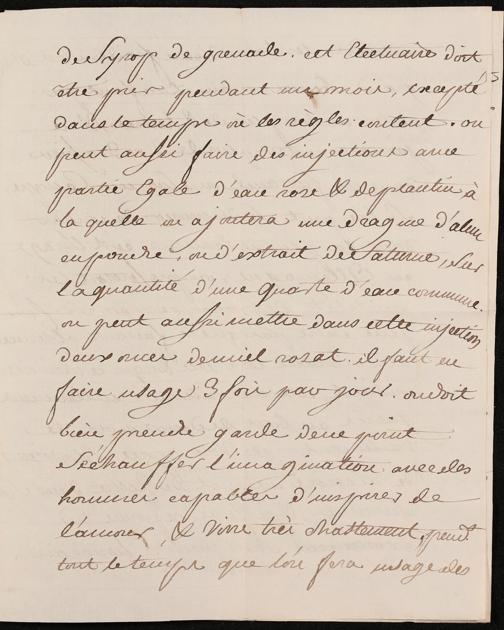 de Syrop de grenade. cet Electuaire doit
etre pris pendant un mois, excepté
dans le temps où les règles coulent. on
peut aussi faire des injections avec
partie Egale d'eau rose & de plantin, à
la quelle on ajoutera une dragme d'alun
en poudre, ou d'extrait de Saturne, sur
la quantité d'une quarte d'eau commune.
on peut aussi mettre dans cette injection
deux onces de miel rozat. il faut en
faire usage 3 fois par jour. on doit
bien prende garde de ne point
s'echauffer l'imagination avec des
hommes capables d'inspirer de
l'amour, & vivre très chastement, pend.t
tout le temps que l'on fera usage des